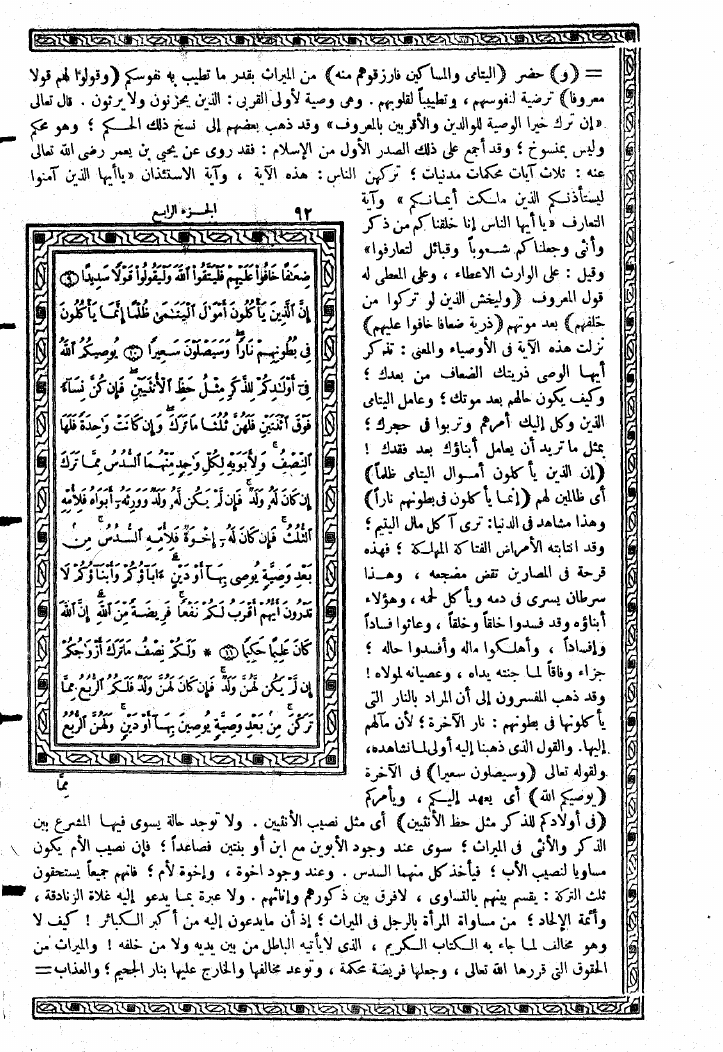 = (و) حضر (اليتامى والمساكين فارزقوهم منه) من الميراث بقدر ما تطيب به نفوسكم (وقولوا لهم قولا
معروفا) ترضية لنفوسهم، وتطييباً لقلوبهم. وهى وصية لأولى القربى: الذين يحزنون ولا يرثون. قال تعالى
«إن ترك خيرا الوصية للوالدين والأقربين بالمعروف» وقد ذهب بعضهم إلى نسخ ذلك الحكم؛ وهو محكم
وليس بمنسوخ؛ وقد أجمع على ذلك الصدر الأول من الإسلام: فقد روى عن يحيى بن يعمر رضى الله تعالى
عنه: ثلاث آيات محكمات مدنيات؛ تركهن الناس: هذه الآية، وآية الاستئذان «ياأيها الذين آمنوا
ليستأذنكم الذين ملكت أيمانكم» وآية
التعارف «ياأيها الناس إنا خلقناكم من ذكر
وأنثى وجعلناكم شعوباً وقبائل لتعارفوا»
وقيل: على الوارث الاعطاء، وعلى المعطى له
قول المعروف (وليخش الذين لو تركوا من
خلفهم) بعد موتهم (ذرية ضعافا خافوا عليهم)
نزلت هذه الآية فى الأوصياء والمعنى: تذكر
أيها الوصى ذريتك الضعاف من بعدك؛
وكيف يكون حالهم بعد موتك؛ وعامل اليتامى
الذين وكل إليك أمرهم وتربوا فى حجرك؛
بمثل ما تريد أن يعامل أبناؤك بعد فقدك!
(إن الذين يأكلون أموال اليتامى ظلماً)
أى ظالمين لهم (إنما يأكلون فى بطونهم ناراً)
وهذا مشاهد فى الدنيا: ترى آكل مال اليتيم؛
وقد انتابته الأمراض الفتاكة المهلكة؛ فهذه
قرحة فى المصارين تقض مضجعه، وهذا
سرطان يسرى فى دمه ويأكل لحمه، وهؤلاء
أبناؤه وقد فسدوا خلقاً وخلقاً، وعاثوا فساداً
وإفساداً، وأهلكوا ماله وأفسدوا حاله؛
جزاء وفاقاً لما جنته يداه، وعصيانه لمولاه!
وقد ذهب المفسرون إلى أن المراد بالنار التى
يأكلونها فى بطونهم: نار الآخرة؛ لأن مآلهم
إليها. والقول الذى ذهبنا إليه أولى لما نشاهده،
ولقوله تعالى (وسيصلون سعيرا) فى الآخرة
(يوصيكم الله) أى يعهد إليكم، ويأمركم
٩٢ الجزء الرابع
ضِعَٰفًا خَافُوا۟ عَلَيْهِمْ فَلْيَتَّقُوا۟ ٱللَّهَ وَلْيَقُولُوا۟ قَوْلًا سَدِيدًا ٩
إِنَّ ٱلَّذِينَ يَأْكُلُونَ أَمْوَٰلَ ٱلْيَتَٰمَىٰ ظُلْمًا إِنَّمَا يَأْكُلُونَ
فِى بُطُونِهِمْ نَارًا وَسَيَصْلَوْنَ سَعِيرًا ١٠ يُوصِيكُمُ ٱللَّهُ
فِىٓ أَوْلَٰدِكُمْ لِلذَّكَرِ مِثْلُ حَظِّ ٱلْأُنثَيَيْنِ فَإِن كُنَّ نِسَآءً
فَوْقَ ٱثْنَتَيْنِ فَلَهُنَّ ثُلُثَا مَا تَرَكَ وَإِن كَانَتْ وَٰحِدَةً فَلَهَا
ٱلنِّصْفُ وَلِأَبَوَيْهِ لِكُلِّ وَٰحِدٍ مِّنْهُمَا ٱلسُّدُسُ مِمَّا تَرَكَ
إِن كَانَ لَهُۥ وَلَدٌ فَإِن لَّمْ يَكُن لَّهُۥ وَلَدٌ وَوَرِثَهُۥٓ أَبَوَاهُ فَلِأُمِّهِ
ٱلثُّلُثُ فَإِن كَانَ لَهُۥٓ إِخْوَةٌ فَلِأُمِّهِ ٱلسُّدُسُ مِنۢ
بَعْدِ وَصِيَّةٍ يُوصِى بِهَآ أَوْ دَيْنٍ ءَابَآؤُكُمْ وَأَبْنَآؤُكُمْ لَا
تَدْرُونَ أَيُّهُمْ أَقْرَبُ لَكُمْ نَفْعًا فَرِيضَةً مِّنَ ٱللَّهِ إِنَّ ٱللَّهَ
كَانَ عَلِيمًا حَكِيمًا ١١ * وَلَكُمْ نِصْفُ مَا تَرَكَ أَزْوَٰجُكُمْ
إِن لَّمْ يَكُن لَّهُنَّ وَلَدٌ فَإِن كَانَ لَهُنَّ وَلَدٌ فَلَكُمُ ٱلرُّبُعُ مِمَّا
تَرَكْنَ مِنۢ بَعْدِ وَصِيَّةٍ يُوصِينَ بِهَآ أَوْ دَيْنٍ وَلَهُنَّ ٱلرُّبُعُ
مِمَّا
(فى أولادكم للذكر مثل حظ الأنثيين) أى مثل نصيب الأنثيين. ولا توجد حالة يسوى فيها المشرع بين
الذكر والأنثى فى الميراث؛ سوى عند وجود الأبوين مع ابن أو بنتين فصاعداً؛ فإن نصيب الأم يكون
مساويا لنصيب الأب؛ فيأخذ كل منهما السدس. وعند وجود اخوة، وإخوة لأم؛ فانهم جميعاً يستحقون
ثلث التركة: يقسم بينهم بالتساوى، لافرق بين ذكورهم وإناثهم. ولا عبرة بما يدعو إليه غلاة الزنادقة،
وأئمة الإلحاد؛ من مساواة المرأة بالرجل فى الميراث؛ إذ أن مايدعون إليه من أكبر الكبائر! كيف لا
وهو مخالف لما جاء به الكتاب الكريم، الذى لايأتيه الباطل من بين يديه ولا من خلفه! والميراث من
الحقوق التى قررها الله تعالى، وجعلها فريضة محكمة، وتوعد مخالفها والخارج عليها بنار الجحيم؛ والعذاب=